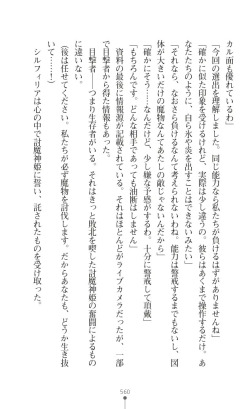 カル面も優れているわ」
「今回の選出を理解しました。同じ能力なら私たちが負けるはずがありませんね」
「確かに似た印象を受けるけれど、実際は少し違うの。彼らはあくまで操作するだけ。あ
なたたちのように、自ら氷や炎を出すことはできないみたい」
「それなら、なおさら負けるなんて考えられないわね。能力は警戒するまでもないし、図
体が大きいだけの魔物なんてあたしの敵じゃないんだから」
「確かにそう……なんだけど、少し嫌な予感がするわ。十分に警戒して頂戴」
「もちろんです。どんな相手であっても油断はしません」
資料の最後に情報源が記載されている。それはほとんどがライブカメラだったが、一部
で目撃者から得た情報もあった。
目撃者──つまり生存者がいる。それはきっと敗北を喫した討魔神姫の奮闘によるもの
に違いない。
（後は任せてください。私たちが必ず魔物を討伐します。だからあなたも、どうか生き抜
いて……！）
シルフィリアは心の中で討魔神姫に誓い、託されたものを受け取った。
560